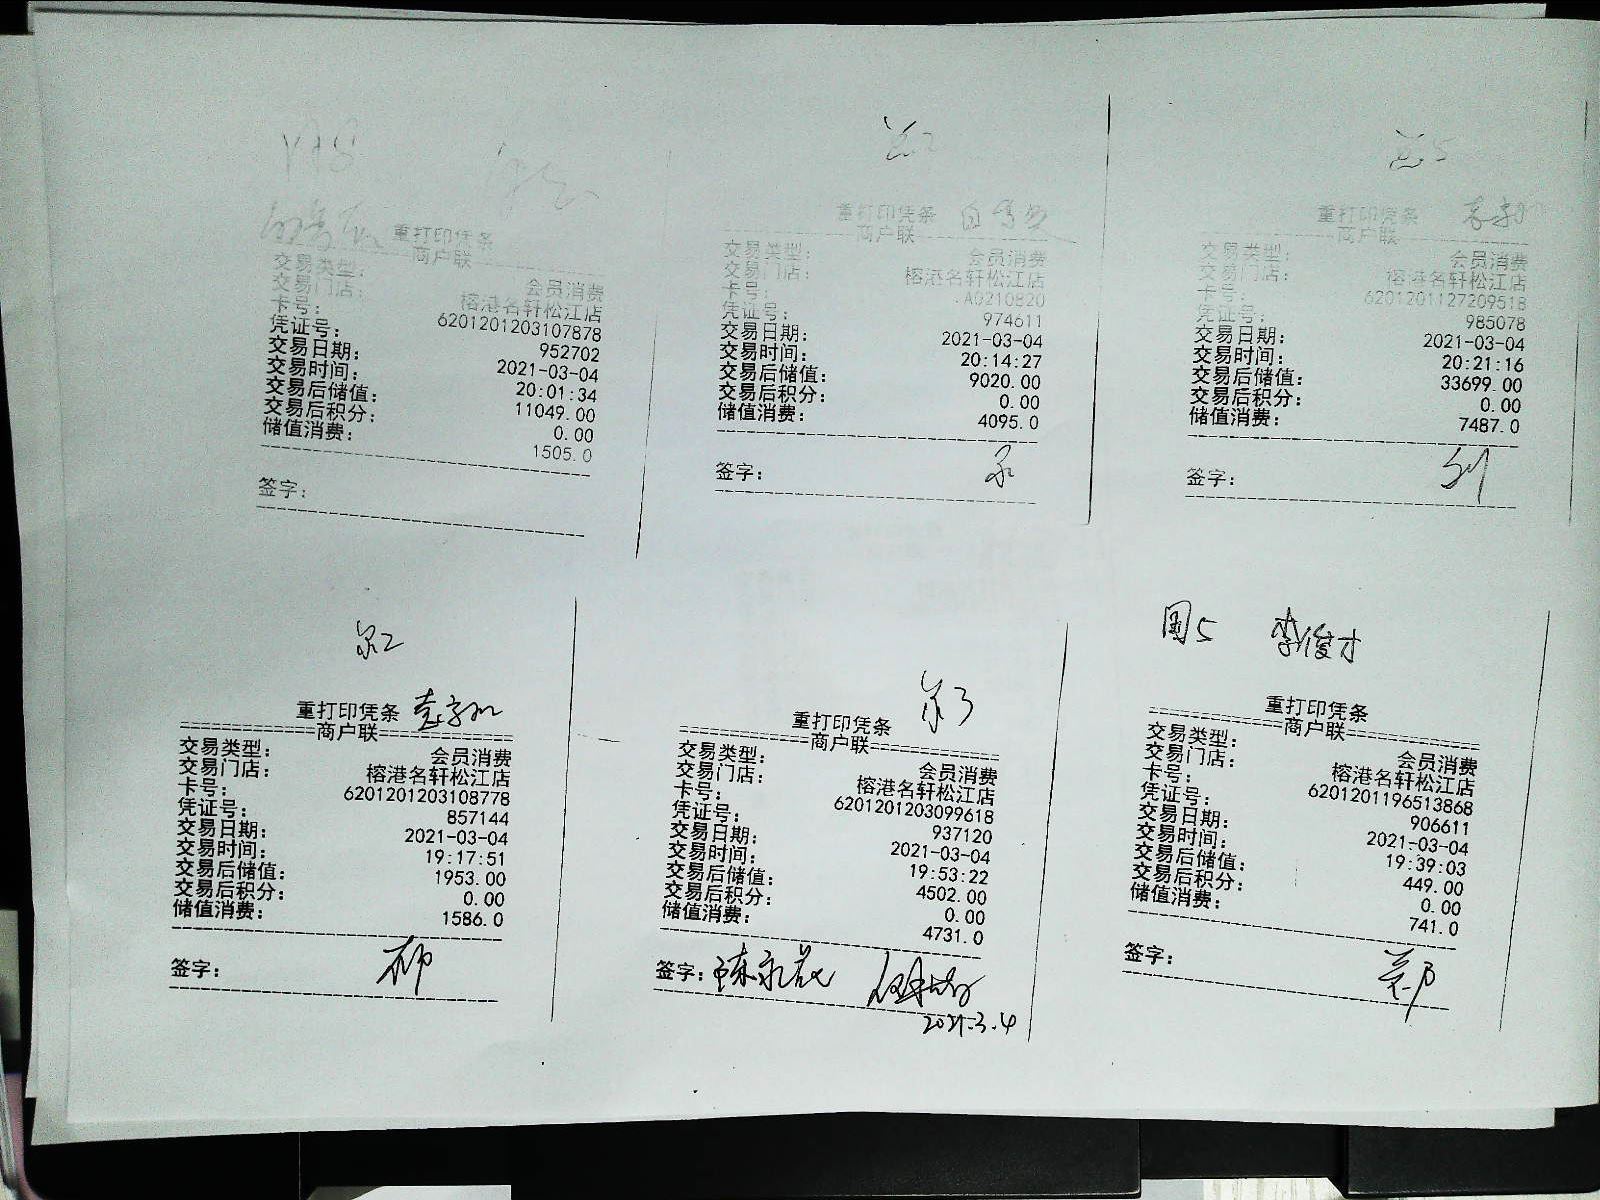 重打印凭条
商户联
交易类型： 会员消费
交易门店： 榕港名轩松江店
卡号： 6201201203107878
凭证号： 952702
交易日期： 2021-03-04
交易时间： 20:01:34
交易后储值： 11049.00
交易后积分： 0.00
储值消费： 1505.0
签字：
重打印凭条
商户联
交易类型： 会员消费
交易门店： 榕港名轩松江店
卡号： A0210820
凭证号： 974611
交易日期： 2021-03-04
交易时间： 20:14:27
交易后储值： 9020.00
交易后积分： 0.00
储值消费： 4095.0
签字：
重打印凭条
商户联
交易类型： 会员消费
交易门店： 榕港名轩松江店
卡号： 6201201127209518
凭证号： 985078
交易日期： 2021-03-04
交易时间： 20:21:16
交易后储值： 33699.00
交易后积分： 0.00
储值消费： 7487.0
签字： 刘
重打印凭条
商户联
交易类型： 会员消费
交易门店： 榕港名轩松江店
卡号： 6201201203108778
凭证号： 857144
交易日期： 2021-03-04
交易时间： 19:17:51
交易后储值： 1953.00
交易后积分： 0.00
储值消费： 1586.0
签字：
重打印凭条
商户联
交易类型： 会员消费
交易门店： 榕港名轩松江店
卡号： 6201201203099618
凭证号： 937120
交易日期： 2021-03-04
交易时间： 19:53:22
交易后储值： 4502.00
交易后积分： 0.00
储值消费： 4731.0
签字：
2021.3.4
国5 李俊才
重打印凭条
商户联
交易类型： 会员消费
交易门店： 榕港名轩松江店
卡号： 6201201196513868
凭证号： 906611
交易日期： 2021-03-04
交易时间： 19:39:03
交易后储值： 449.00
交易后积分： 0.00
储值消费： 741.0
签字：